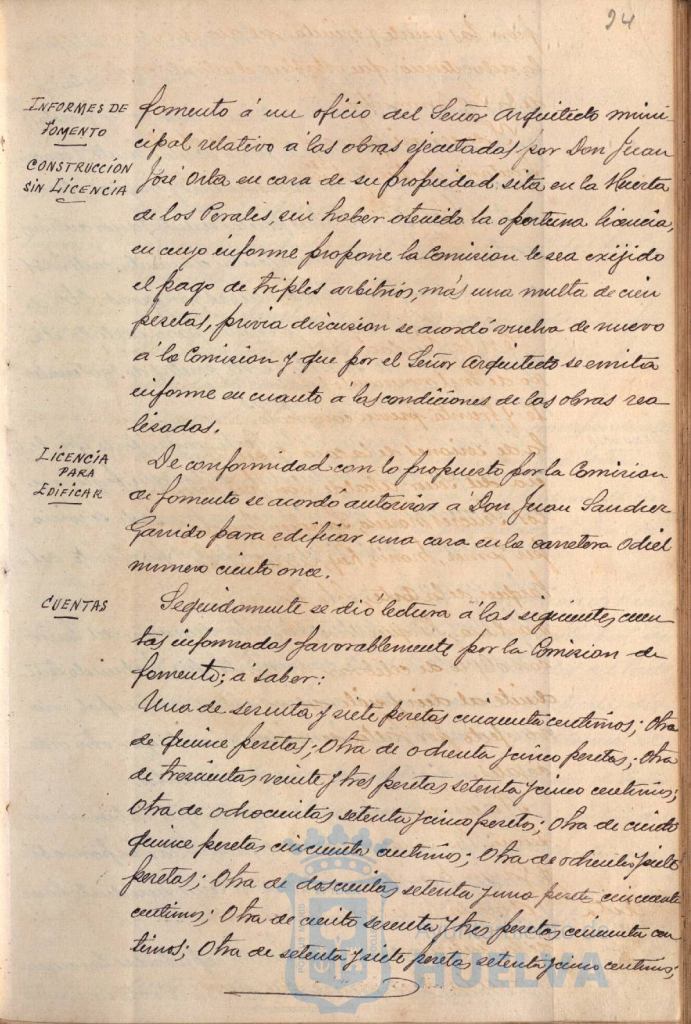 24
INFORMES DE
FOMENTO
CONSTRUCCION
SIN LICENCIA
fomento á un oficio del Señor Arquitecto muni-
cipal relativo á las obras ejecutadas por Don Juan
José Orta en casa de su propiedad sita en la Huerta
de los Perales, sin haber obtenido la oportuna licencia,
en cuyo informe propone la Comision le sea exijido
el pago de triples arbitrios, más una multa de cien
pesetas, previa discusion se acordó vuelva de nuevo
á la Comision y que por el Señor Arquitecto se emita
informe en cuanto á las condiciones de las obras rea-
lisadas.
LICENCIA
PARA
EDIFICAR
De conformidad con lo propuesto por la Comision
de fomento se acordó autorisar á Don Juan Sanchez
Garrido para edificar una casa en la carretera Odiel
numero ciento once.
CUENTAS
Seguidamente se dió lectura á las siguientes cuen-
tas informadas favorablemente por la Comision de
fomento; á saber:
Una de sesenta y siete pesetas cincuenta centimos; Otra
de quince pesetas; Otra de ochenta y cinco pesetas; Otra
de trescientas veinte y tres pesetas setenta y cinco centimos;
Otra de ochocientas setenta y cinco pesetas; Otra de ciento
quince pesetas cincuenta centimos; Otra de ochenta y siete
pesetas; Otra de doscientas setenta y una peseta cincuenta
centimos; Otra de ciento sesenta y tres pesetas cincuenta cen-
timos; Otra de setenta y siete pesetas setenta y cinco centimos;
HUELVA